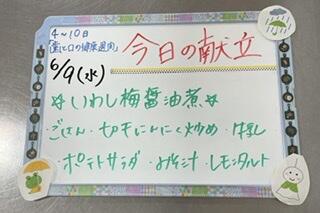 4~10日
歯と口の健康週間
今日の献立
6/9(水)
☆いわし梅醤油煮☆
・ごはん・切干にんにく炒め・牛乳
・ポテトサラダ・みそ汁・レモンタルト